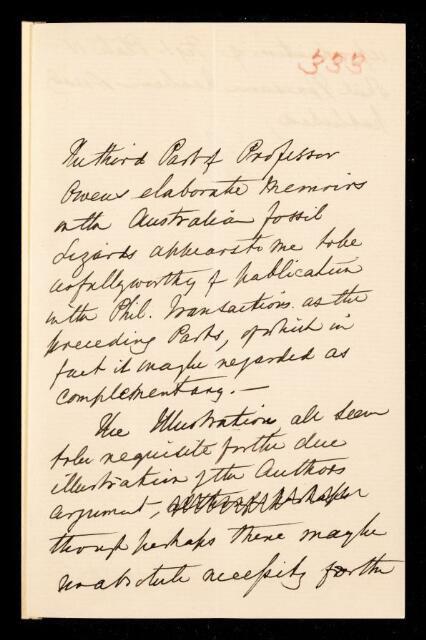 333
The third Part of Professor
Owens elaborate Memoirs
on the Australian fossil
Lizards appears to me to be
as fully worthy of publication
in the Phil. Transactions. as the
preceding Parts, of which in
fact it may be regarded as
complementary. —
The Illustrations, all seem
to be requisite for the due
illustration of the Authors
argument,
though perhaps there may be
no absolute necessity for the